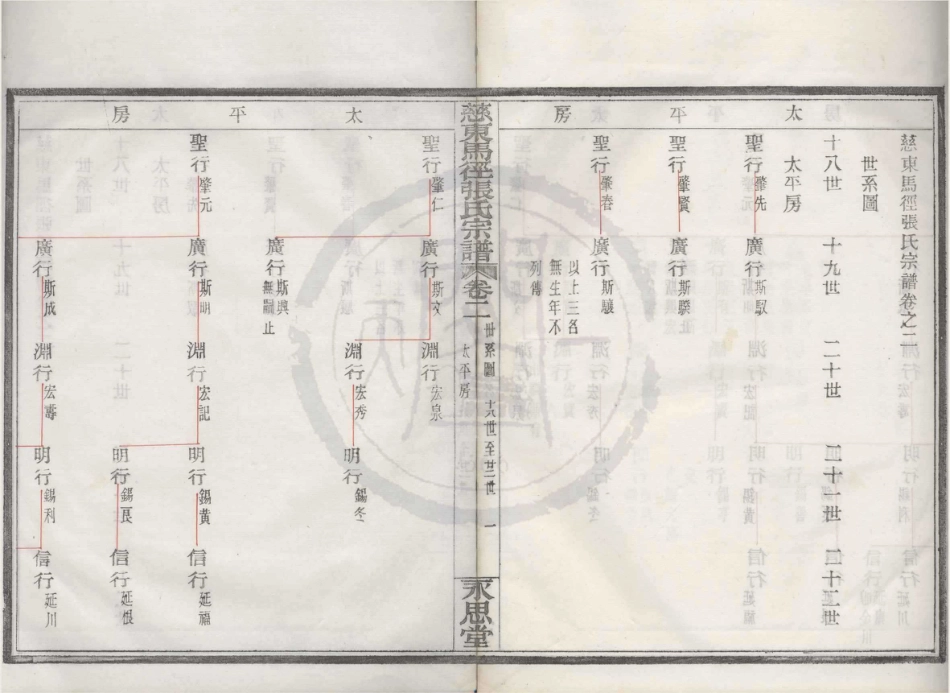 慈東馬徑張氏宗譜卷之二
世系圖
十八世
十九世
二十世
二十一世
二十二世
太平房
太平房
聖行肇先
廣行斯馭
聖行肇賢
廣行斯騤
聖行肇春
廣行斯驤
以上三名
無生年不
列傳
慈東馬徑張氏宗譜
卷二
世系圖
太平房
十八世至廿二世
一
永思堂
太平房
聖行肇仁
廣行斯文
淵行宏泉
淵行宏秀
明行錫冬
廣行斯輿
無嗣止
聖行肇元
廣行斯明
淵行宏記
明行錫黃
信行延福
明行錫良
信行延根
廣行斯成
淵行宏壽
明行錫利
信行延川